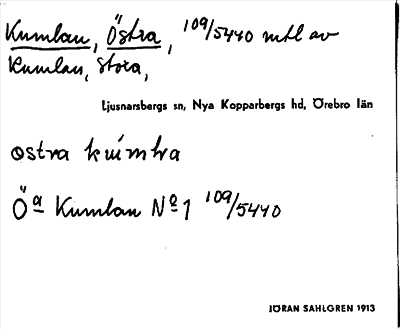 Kumlan, Östra, 109/5440 mtl av
Kumlan, Stora,
Ljusnarsbergs sn, Nya Kopparbergs hd, Örebro län
östra
Öa Kumlan No 1 109/5440
JÖRAN SAHLGREN 1913